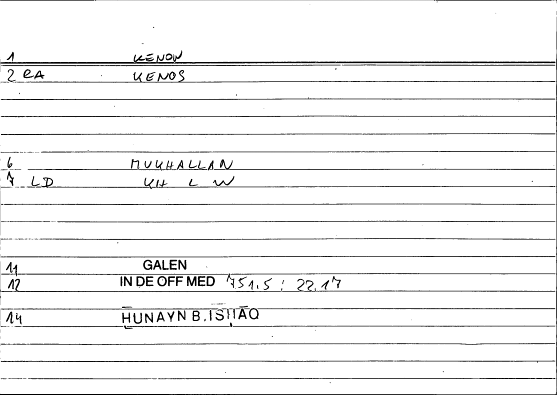 1 KENOW
2 RA KENOS
6 MUKHALLAN
7 LD KH L W
11 GALEN
12 IN DE OFF MED 751.5 : 22.17
14 ḤUNAYN B. ISḤĀQ